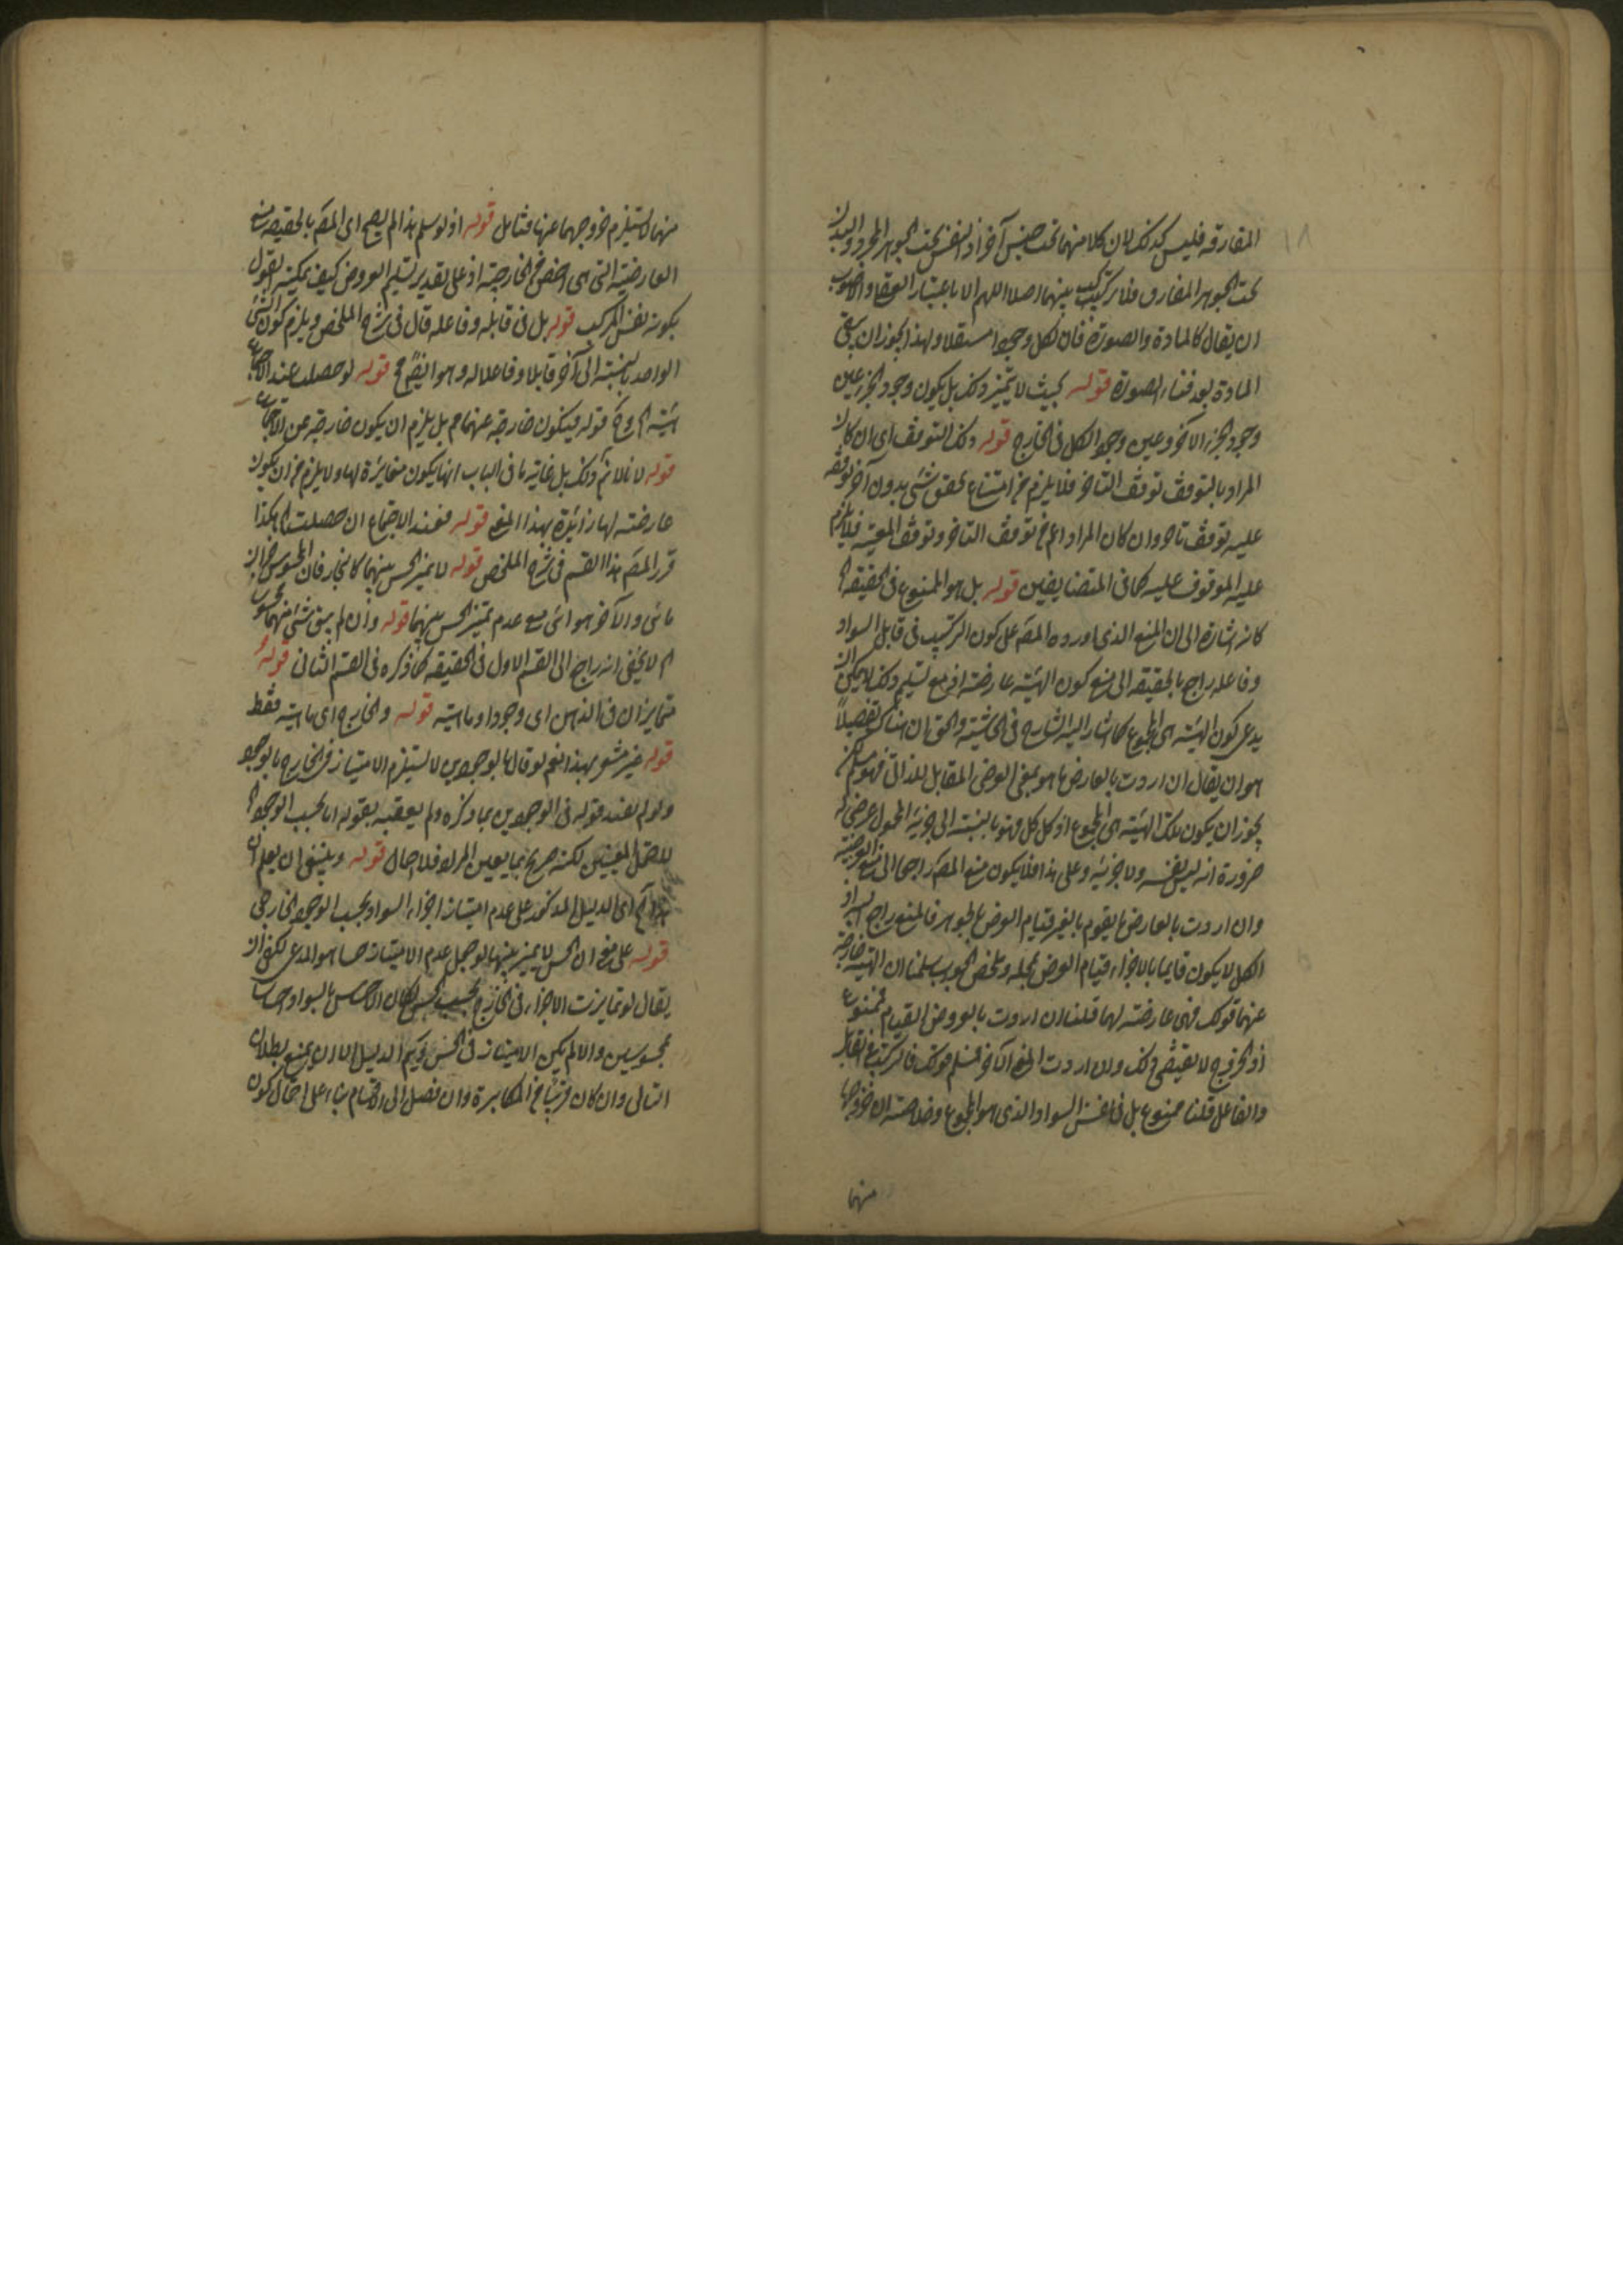 ١٨
المفارقه فليس كذلك لان كلا منهما تحت جنس آخر اذ النفس تحت الجوهر المجرد والبدن
تحت الجوهر المفارق فلا تركيب بينهما اصلا اللهم الا باعتبار العقل والاصوب
ان يقال كالمادة والصورة فان لكل وجودا مستقلا ولهذا يجوز ان يبقى
المادة بعد فناء الصورة قوله بحيث لا يتميز وذلك بل يكون وجود الجزء عين
وجود الجزء الآخر وعين وجود الكل فى الخارج قوله وذلك التوقف اى ان كان
المراد بالتوقف توقف التاخر فلا يلزم من امتناع تحقق شئ بدون آخر توقفه
عليه توقف تاخر وان كان المراد اعم من توقف التاخر وتوقف المعية فلا يلزم
عليه الموقوف عليه كما فى المتضايفين قوله بل هو الممنوع فى الحقيقه
كانه اشارة الى ان المنع الذى اورده المصَ على كون التركيب فى قابل السواد
وفاعله راجع بالحقيقه الى منع كون الهيئه عارضة اذ مع تسليم ذلك لا يمكن ان
يدعى كون الهيئه هى المجموع كما اشار اليه الشارح فى الحاشية والحق ان هناك تفصيلاً
هو ان يقال ان اردت بالعارض ما هو بمعنى العرضى المقابل للذاتى فهو مسلم
يجوز ان يكون تلك الهيئه هى المجموع اذ كل كل فهو بالنسبة الى جزئه المحمول عرضى له
ضرورة انه ليس نفسه ولا جزئيه وعلى هذا فلا يكون منع المصَ راجعا الى منع العرضية
وان اردت بالعارض ما يقوم بالغير قيام العرض بالجوهر فالمنع راجع اليه اذ
الكل لا يكون قايما بالاجزاء قيام العرض بمحله وملخص الجواب سلمنا ان الهيئه خارجة
عنهما قولك فهى عارضة لهما قلنا ان اردت بالعروض القيام فممنوع
اذ الخروج لا يقتضى ذلك وان اردت المعنى الآخر فمسلم قولك فالتركيب فى القابل
والفاعل قلنا ممنوع بل فى نفس السواد الذى هو المجموع وخلاصته ان خروجها
منهما
منهما لا يستلزم خروجهما عنها فتامل قوله اذ لو سلم هذا لم يصح اى المصَ بالحقيقه منع
العارضية التى هى اخص من الخارجية اذ على تقدير تسليم العروض كيف يمكنه القول
بكونه نفس المركب قوله بل فى قابله وفاعله قال فى شرح الملخص ويلزم كون الشئ
الواحد بالنسبة الى آخر قابلا وفاعلا له وهو ايضا مح قوله لو حصلت عند الاجتماع
هيئة اخرى قوله فيكون خارجة عنهما مم بل يلزم ان يكون خارجة عن الاجتماع
قوله لا نلائم ذلك بل غاية ما فى الباب انها يكون مغايرة لها ولا يلزم من ان يكون
عارضة لها زائدة بهذا المعنى قوله فعند الاجتماع ان حصلت الخ هكذا
قرر المصَ هذا القسم فى شرح الملخص قوله لا يميز الحس بينهما كالبخار فان المحسوس جزآن
مائى والآخر هوائى مع عدم تميز الحس بينهما قوله وان لم يبق شئ منهما محسوسا
الخ لا يخفى انه راجع الى القسم الاول فى الحقيقه كما ذكره فى القسم الثانى قوله
متمايزان فى الذهن اى وجودا وماهية قوله والخارج اى ماهية فقط
قوله غير مشعر بهذا نعم لو قال بالوجودين لا يستلزم الامتياز فى الخارج بالوجود
ولو لم يقيد قوله فى الوجودين بما ذكره ولم يعقبه بقوله لا بحسب الوجود
للاحتمل المعنيين لكنه صريح بما يعين المراد فلا احتمال قوله وينبغى ان يعلم ان
هذا الخ اى الدليل المذكور على عدم امتياز اجزاء السواد بحسب الوجود الخارجى
قوله على منع ان الحس لا يميز بينها لو جعل عدم الامتياز حسا هو المدعى لكفى ان
يقال لو تمايزت الاجزاء فى الخارج بحسب الحس لكان الاحساس بالسواد احساسا
بمحسوسين والا لم يكن الامتياز فى الحس ويتم الدليل الا ان يمنع بطلان
التالى وان كان قريبا من المكابرة وان فصل الى الاقسام بناء على احتمال كون